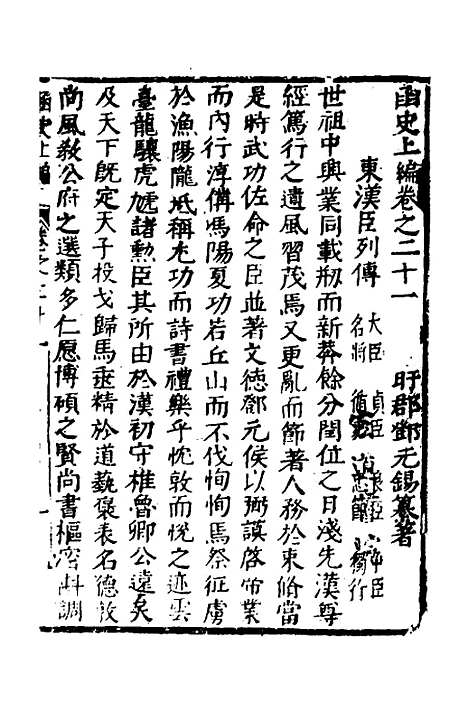 函史上編卷之二十一
盱郡鄧元錫纂著
東漢臣列傳 大臣 貞臣 良臣 爭臣
名將 循吏 忠節 獨行
世祖中興業同載刱而新莽餘分閏位之日淺先漢尊
經篤行之遺風習茂焉又更亂而節著人務於束脩當
是時武功佐命之臣並著文德鄧元侯以弼謨啓帝業
而內行淳備馮陽夏功若丘山而不伐恂恂焉祭征虜
於漁陽隴坻稱尤功而詩書禮樂乎忱敦而悅之迹雲
臺龍驤虎虓諸勲臣其所由於漢初守椎魯卿公遠矣
及天下既定天子投戈歸馬垂精於道藝褒表名德敦
尚風敎公府之選類多仁愿博碩之賢尚書樞密斟調